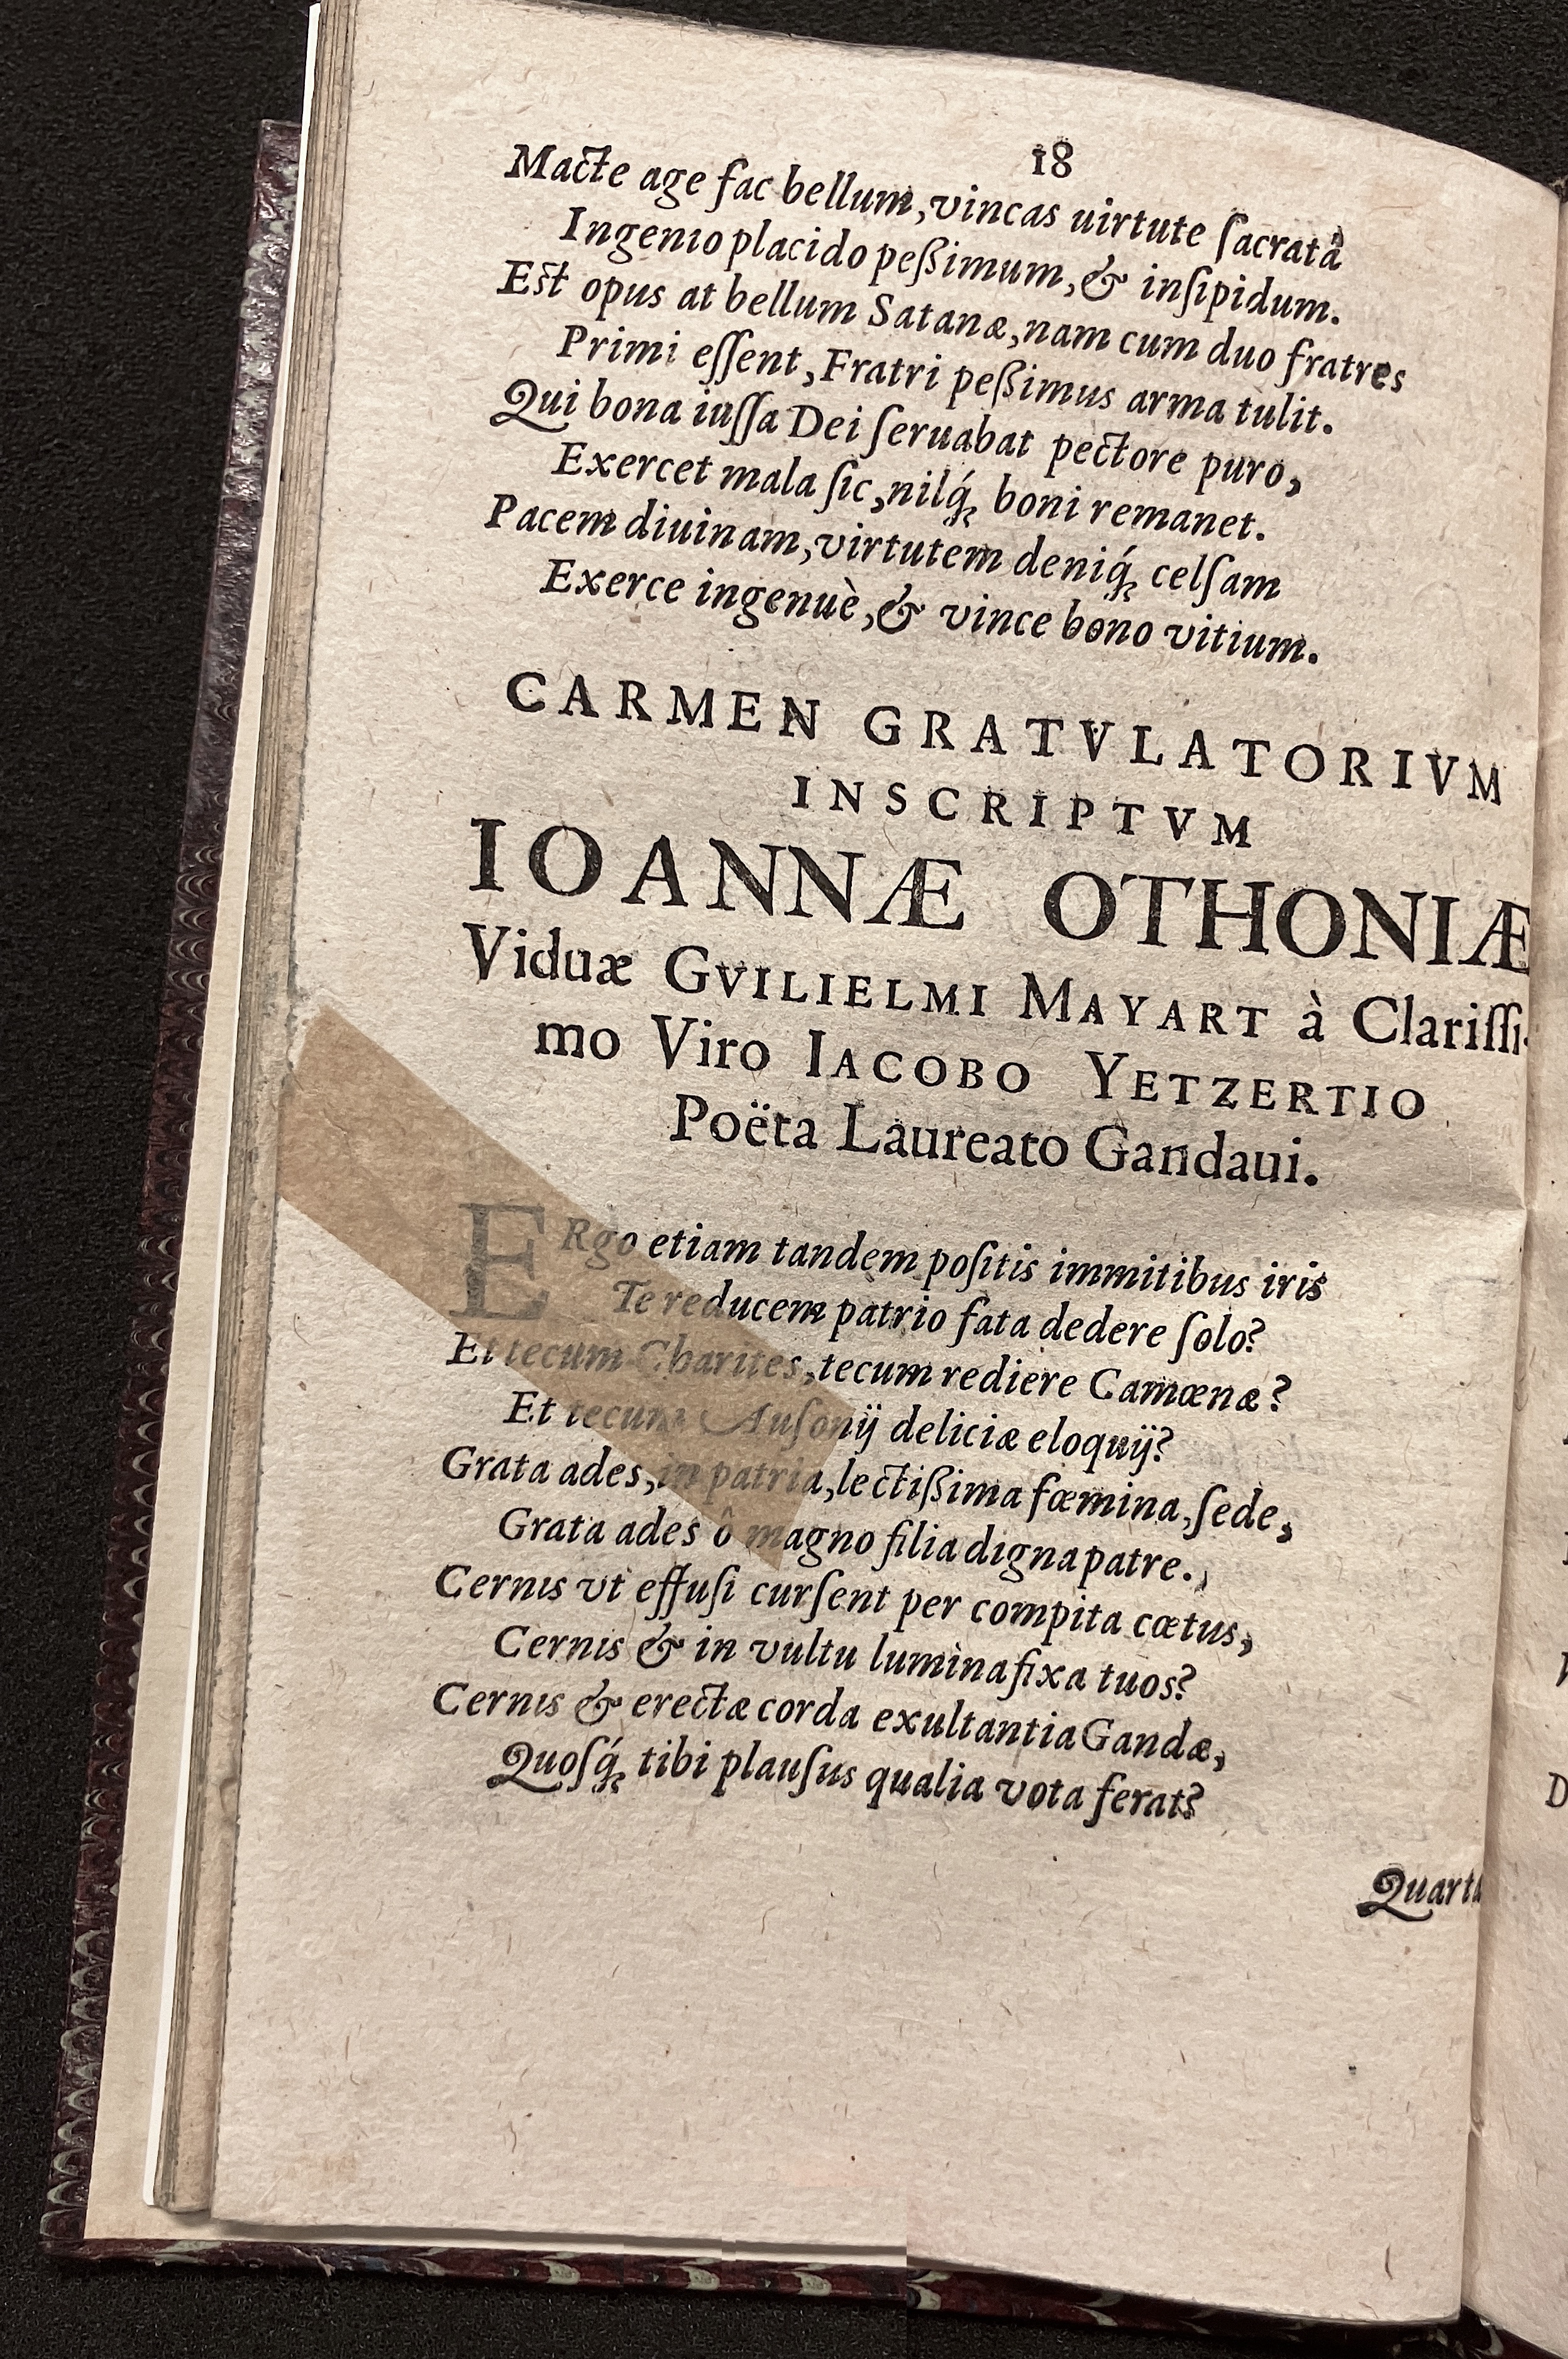 18
Macte age fac bellum, vincas uirtute ſacratâ
Ingenio placido peßimum, & inſipidum.
Est opus at bellum Satanæ, nam cum duo fratres
Primi eſſent, Fratri peßimus arma tulit.
Qui bona iuſſa Dei ſeruabat pectore puro,
Exercet mala ſic, nilq́ꝫ boni remanet.
Pacem diuinam, virtutem deniq́ꝫ celſam
Exerce ingenuè, & vince bono vitium.
CARMEN GRATVLATORIVM
INSCRIPTVM
IOANNÆ OTHONIÆ
Viduæ GVILIELMI MAYART à Clariſſi-
mo Viro IACOBO YETZERTIO
Poëta Laureato Gandaui.
ERgo etiam tandem poſitis immitibus iris
Te reducem patrio fata dedere ſolo?
Et tecum Charites, tecum rediere Camœnæ?
Et tecum Auſonij deliciæ eloquij?
Grata ades, in patria, lectißima fœmina, ſede,
Grata ades ô magno filia digna patre.
Cernis vt effuſi curſent per compita cœtus,
Cernis & in vultu lumina fixa tuos?
Cernis & erectæ corda exultantia Gandæ,
Quoſq́ꝫ tibi plauſus qualia vota ferat?